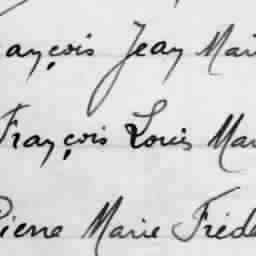 ançois Jean Mari
François Louis Mar
Pierre Marie Fréde